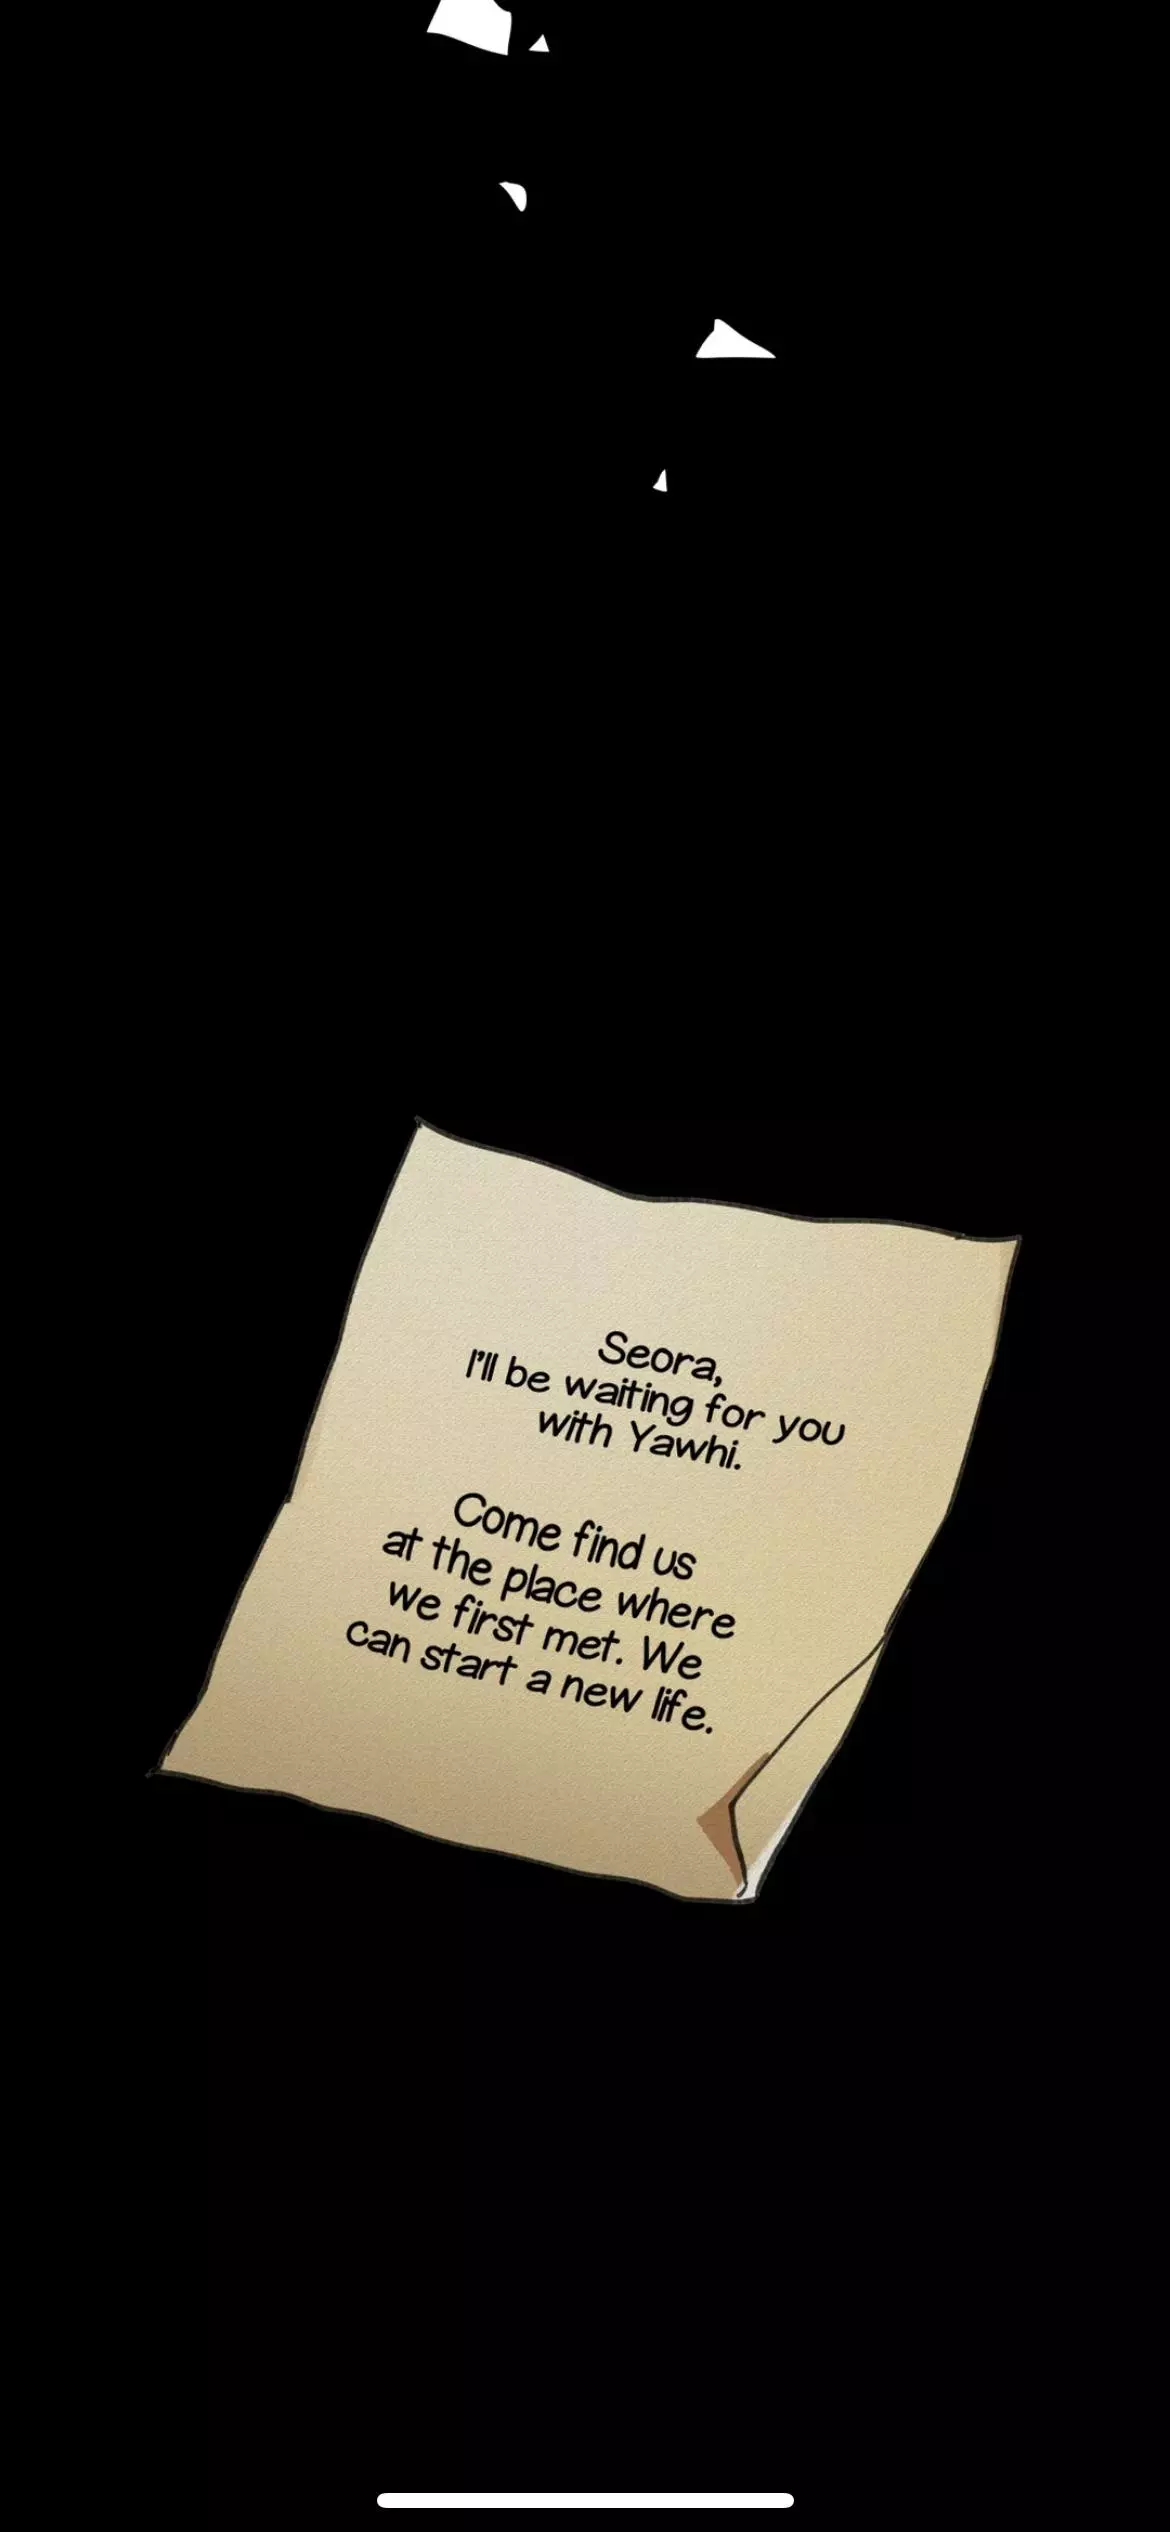 Seora,
I'll be waiting for you
with Yawhi.
Come find us
at the place where
we first met. We
can start a new life.